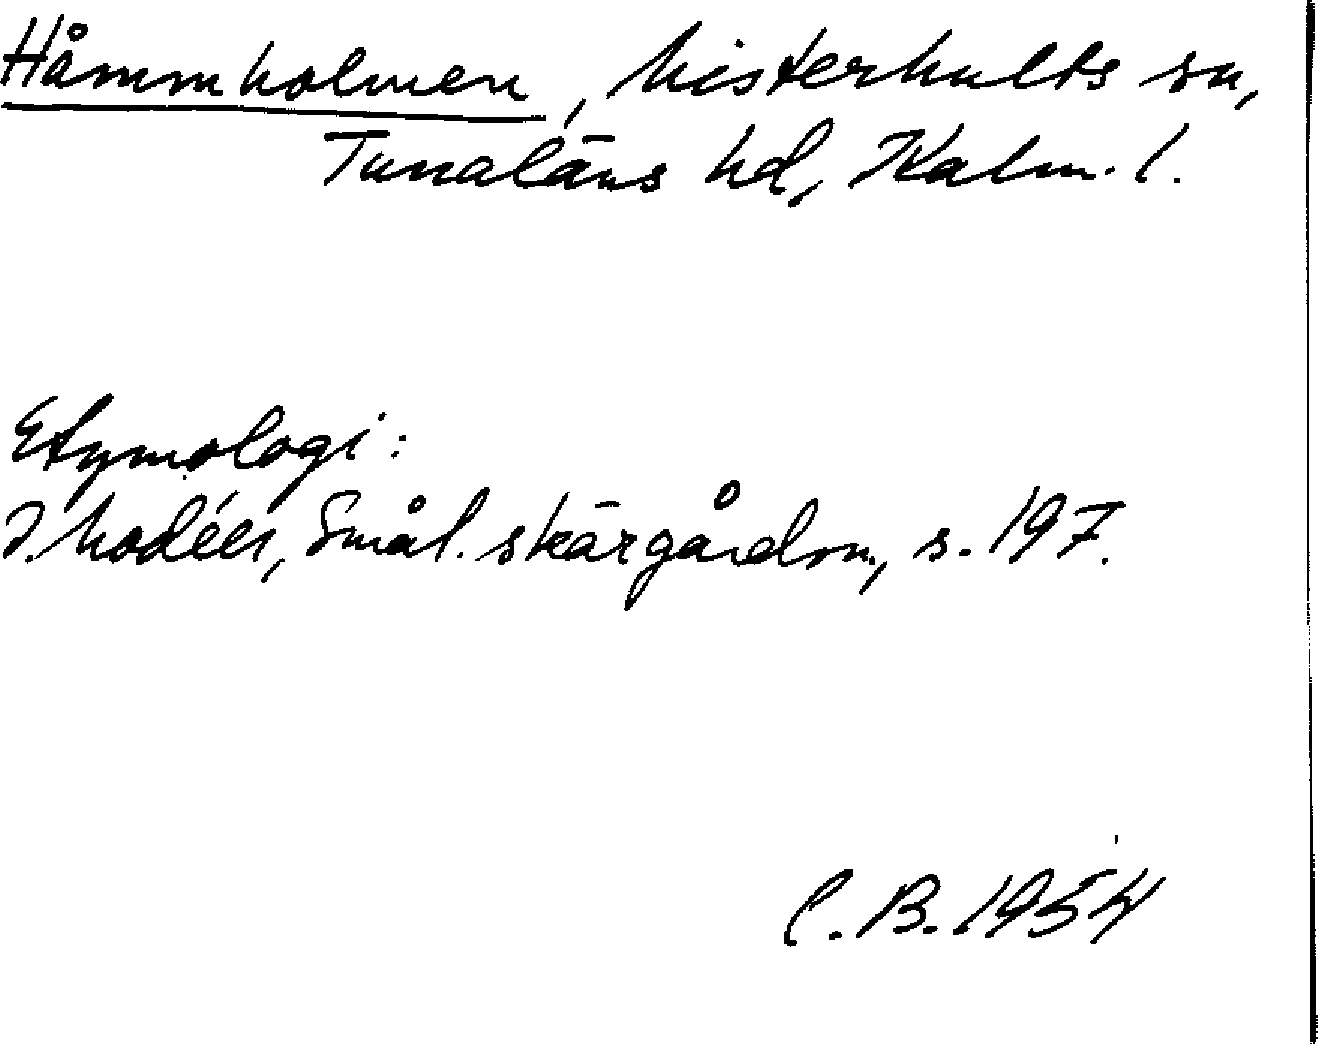 Håmmholmen, Misterhults sn,
Tunaläns hd, Kalm. l.
Etymologi:
I. Modéer, Smål. skärgårdsn., s. 197.
C. B. 1954